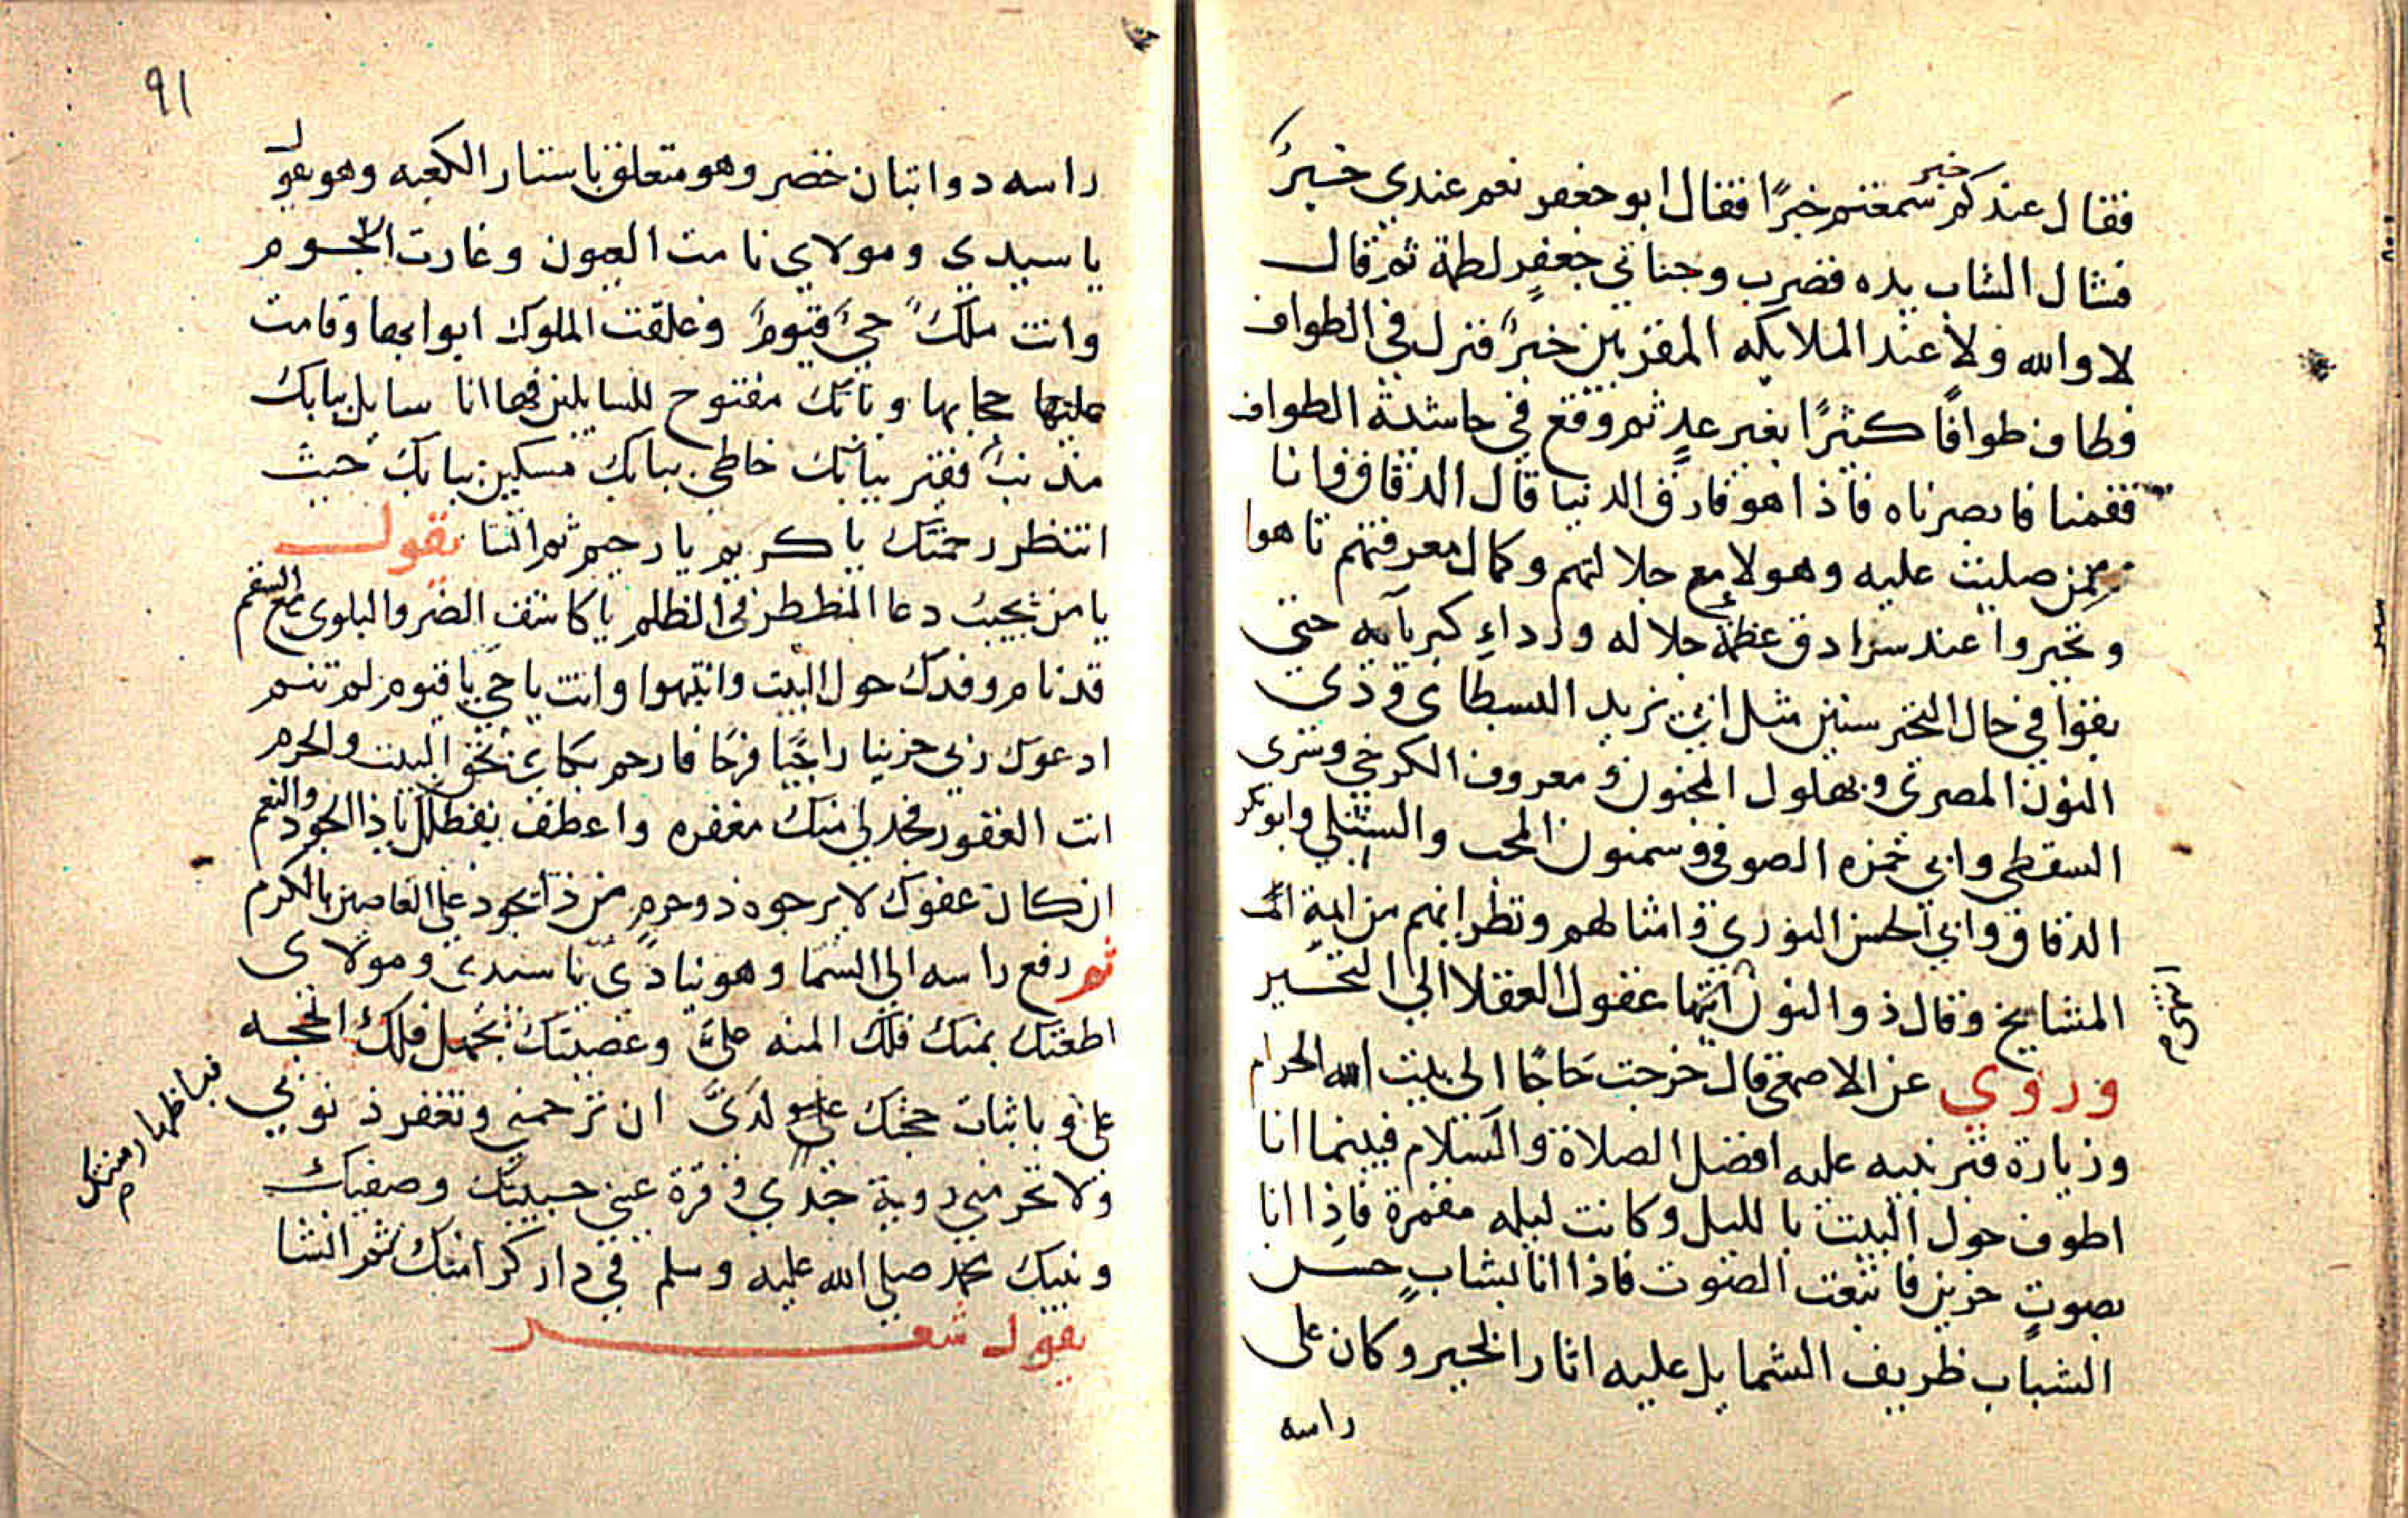 فقال عندكم سمعتم خبرًا فقال ابو جعفر نعم عندي خبرٌ
خبر
فشال الشاب يده فضرب وجنا ابي جعفرٍ لطمة ثم قال
لا والله ولا عند الملايكه المقربين خبرٌ فنزل في الطواف
فطاف طوافًا كثيرًا بغير عدٍ ثم وقع في حاشية الطواف
فقمنا فابصرناه فاذا هو فارق الدنيا قال الدقاق فانا
ممن صليت عليه وهولا مع جلالتهم وكمال معرفتهم تاهوا
وتحيروا عند سرادق عظمة جلاله ورداءِ كبريآيه حتى
بقوا في حال التحير سنين مثل ابي يزيد البسطامى وذي
النون المصري وبهلول المجنون ومعروف الكرخي وسرى
السقطي وابي حمزه الصوفي وسمنون المحب والشبلي وابو بكر
الدقاق وابي الحسن النوري وامثالهم ونظرايهم من ايمة
المشايخ وقال ذو النون انتها عقول العقلا الي التحير
وروي عن الاصمعي قال خرجت حاجًا الى بيت الله الحرام
وزيارة قبر نبيه عليه افضل الصلاة والسلام فبينما انا
اطوف حول البيت بالليل وكانت ليله مقمرة فاذا انا
بصوتٍ حزين فاتبعت الصوت فاذا انا بشابٍ حسن
الشباب ظريف الشمايل عليه اثار الخير وكان على
راسه
91
راسه دوابتان خضر وهو متعلق باستار الكعبه وهو يقول
يا سيدي ومولاي نامت العيون وغارت النجوم
وانت ملكٌ حيٌ قيومٌ وغلقت الملوك ابوابها وقامت
عليها حجابها وبابك مفتوح للسايلين فها انا سايل ببابك
مذنبٌ فقير ببابك خاطي ببابك مسكين ببابك حيث
انتظر رحمتك يا كريم يا رحيم ثم انشا يقول
يا من يجيب دعا المظطر في الظلم يا كاشف الضر والبلوى مع السقم
قد نام وفدك حول البيت وانتبهوا وانت يا حي يا قيوم لم تنم
ادعوك ربي حزينا راجيًا فرحًا فارحم بكاي بحق البيت والحرم
انت الغفور فجد لي منك مغفره واعطف بفظلك يا ذا الجود والنعم
ان كان عفوك لا يرجوه ذو جرم من ذا يجود على العاصين بالكرم
ثم رفع راسه الى السما وهو ينادي يا سيدي ومولاى
اطعتك بمنك فلك المنه عليَّ وعصيتك بجهل فلك الحجه
على فباظهار منتك وباثبات حجتك لدىَّ ان ترحمني وتغفر ذنوبي
ولا تحرمني روية جدي وقرة عيني حبيبك وصفيك
ونبيك محمد صلى الله عليه وسلم في دار كرامتك ثم انشا
يقول شعر